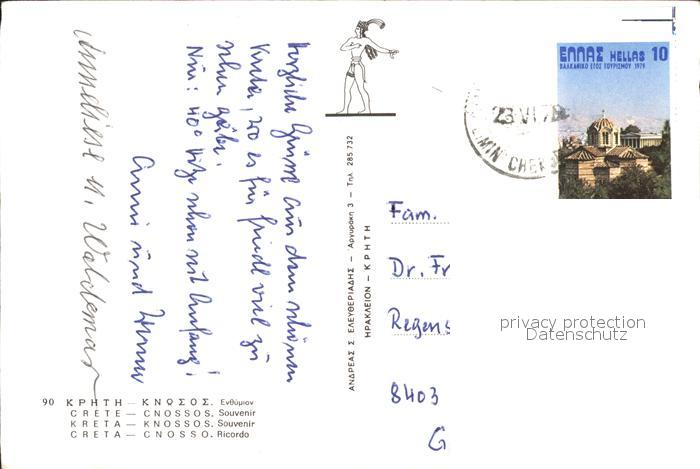 Herzliche Grüße aus dem schönen
Kreta, wo es für Friedl viel zu
sehen gäbe.
Nur: 40° Hitze schon seit Anfang!
Anni und
Anneliese u. Waldemar
90 ΚΡΗΤΗ — ΚΝΩΣΟΣ. Ενθύμιον
CRETE — CNOSSOS. Souvenir
KRETA — KNOSSOS. Souvenir
CRETA — CNOSSO. Ricordo
ΑΝΔΡΕΑΣ Σ. ΕΛΕΥΘΕΡΙΑΔΗΣ — Αργυράκη 3 — Τηλ. 285 732
ΗΡΑΚΛΕΙΟΝ - ΚΡΗΤΗ
ΕΛΛΑΣ HELLAS 10
ΒΑΛΚΑΝΙΚΟ ΕΤΟΣ ΤΟΥΡΙΣΜΟΥ 1979
23 VI 79
LIMIN CHER
Fam.
Dr. Fr
Regens
8403
G
privacy protection
Datenschutz